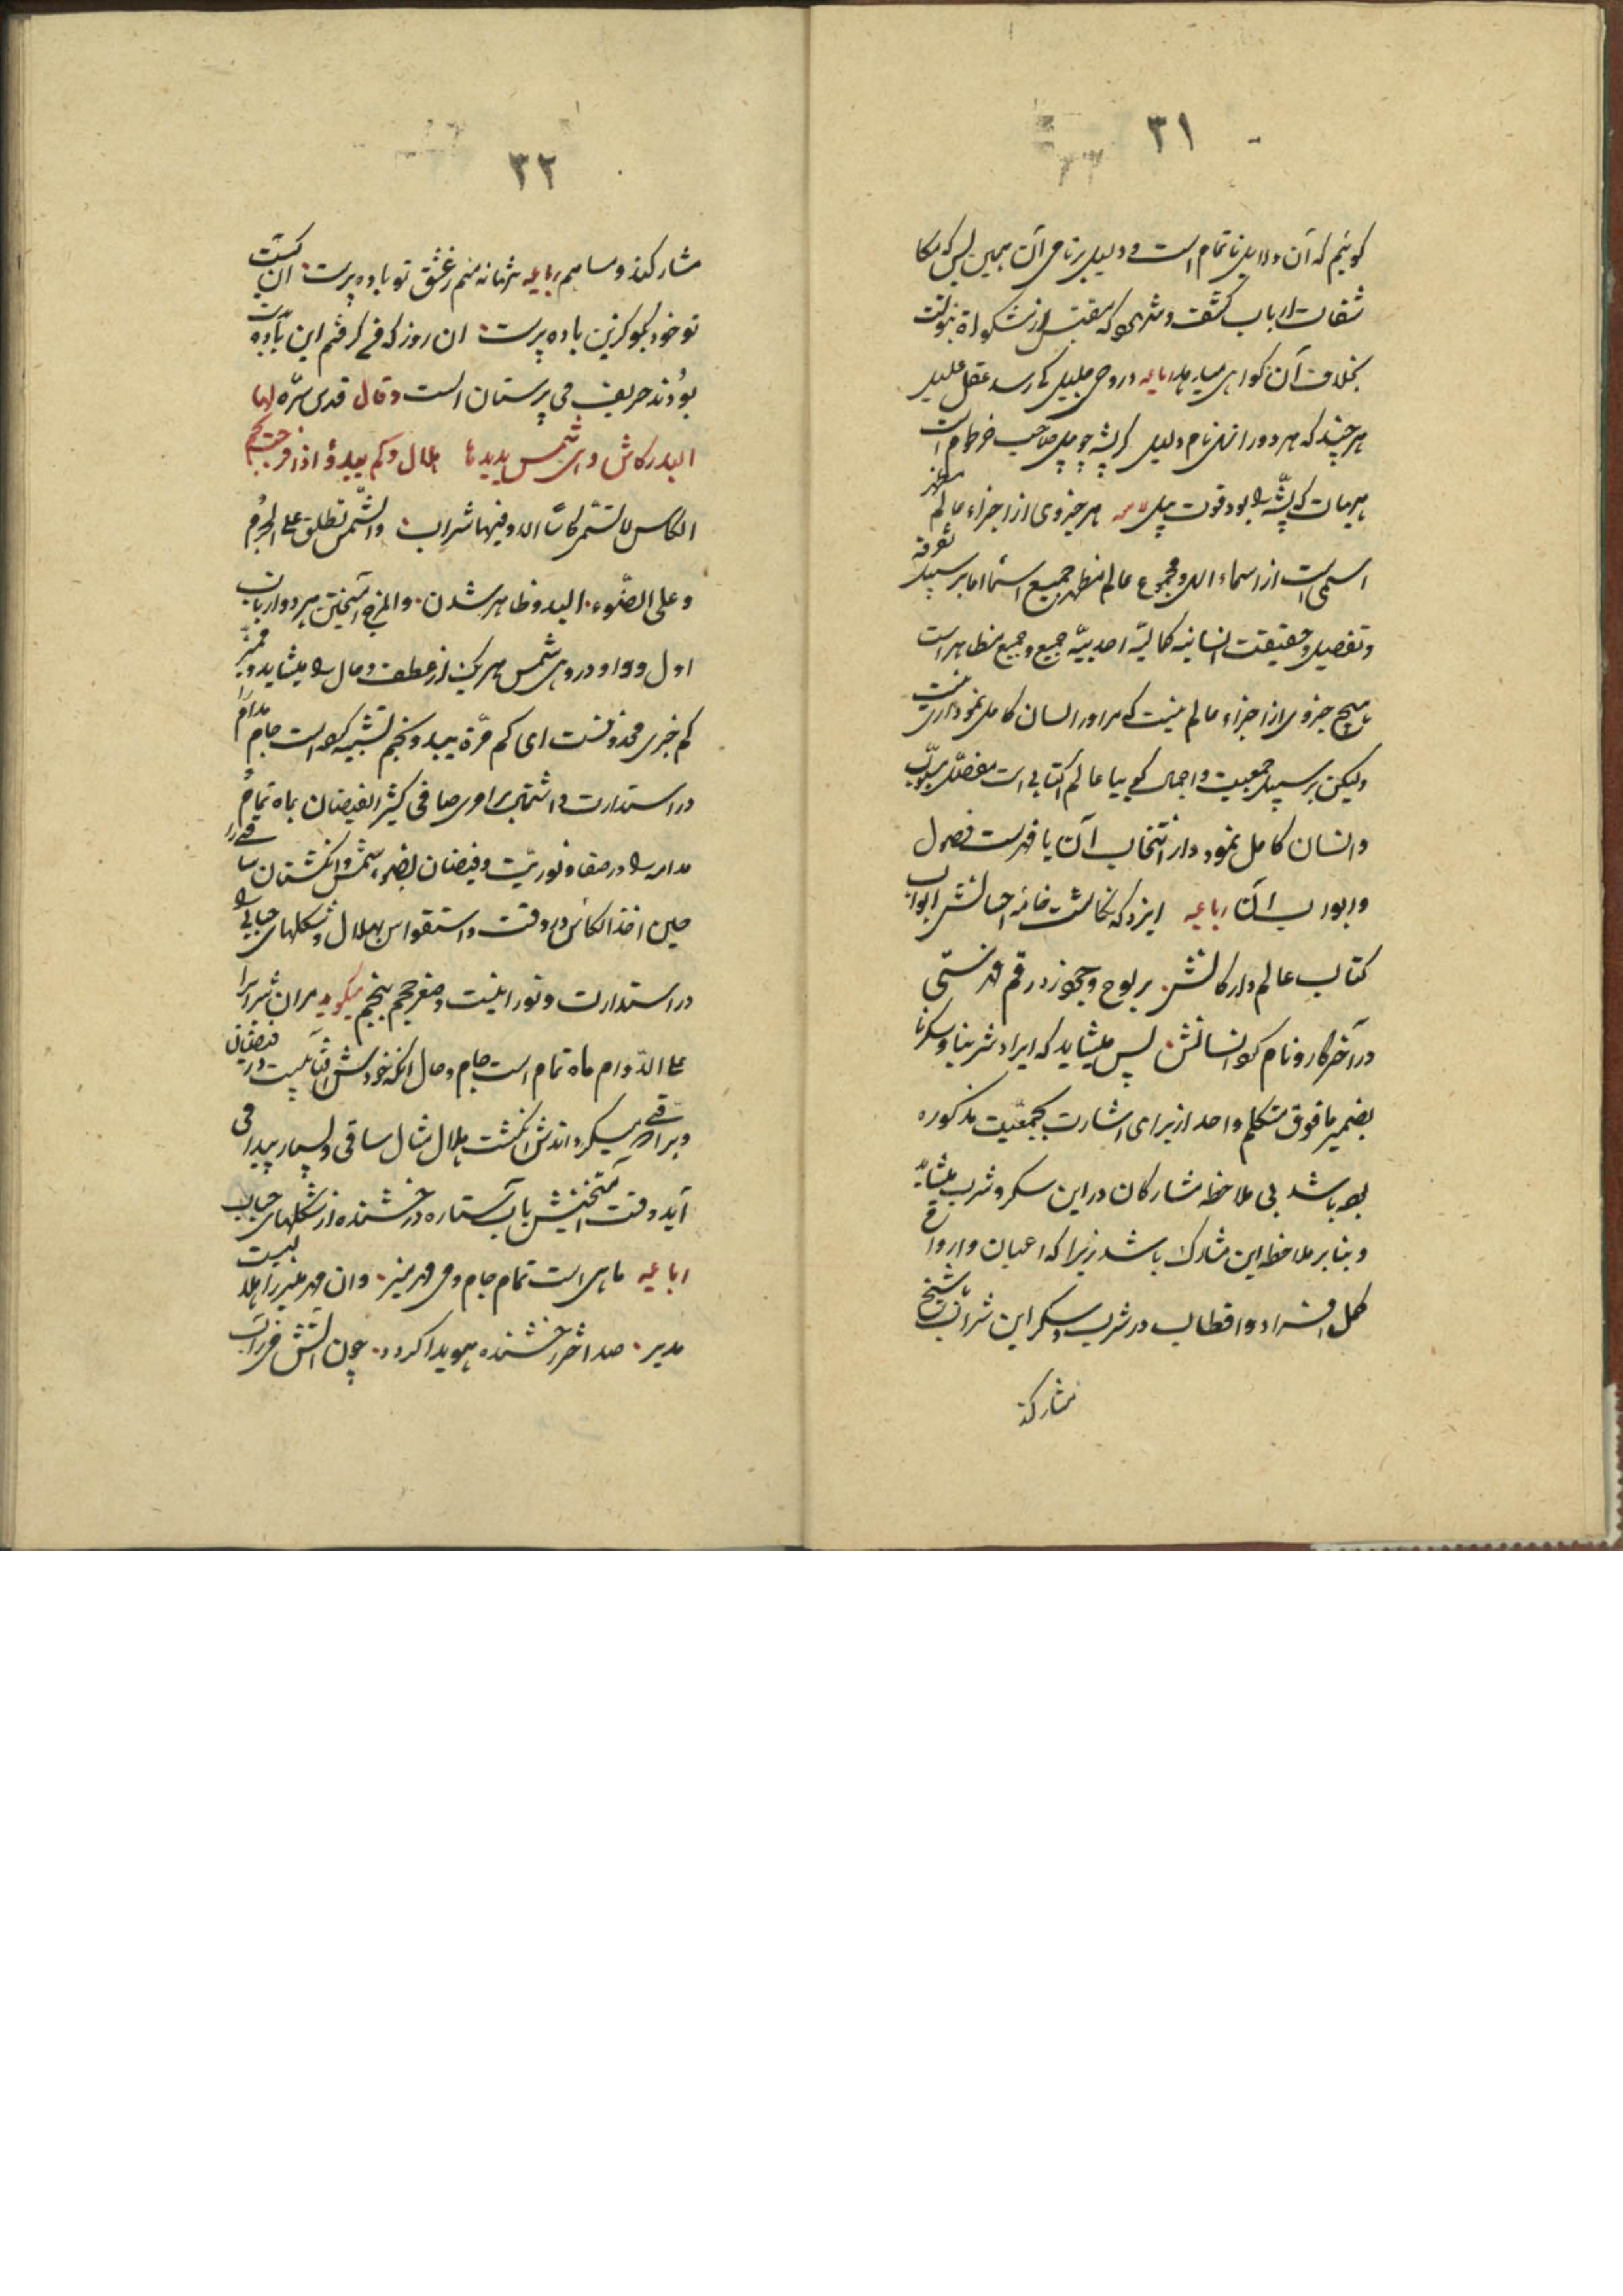 ٣١
گوئیم که آن دلایل ناتمام است و دلیل بر تمامی آن همین بس که مکا
شفات ارباب کشف و شهود که مقتبس از مشکوة نبوت است
بخلاف آن گواهی میدهد رباعیه در وحی جلیل کی رسد عقل علیل
هرچند که هر دو را نهی نام دلیل گر پشه چو پیل صاحب خرطوم است
هیهات که پشه را بود قوت پیل هر جزوی از اجزاء عالم مظهر
اسمی است از اسماء الهی و مجموع عالم مظهر جمیع اسما اما بر سبیل تفرقه
و تفصیل و حقیقت انسانیه کمالیه احدیه جمیع و جمیع مظاهر است
هیچ جزوی از اجزاء عالم نیست که مر او را در انسان کامل نموداری نیست
ولیکن بر سبیل جمعیت و اجمال گوییا عالم کتابی است مفصل مبوب
و انسان کامل نمودار انتخاب آن یا فهرست فصول
و ابواب آن رباعیه ایزد که نگاشت خامه احسانش ابواب
کتاب عالم و ارکانش بر لوح وجود زد رقم فهرستی
در آخر کار و نام کرد انسانش پس میشاید که ایراد شربنا و سکرنا
بضمیر مافوق متکلم واحد از برای اشارت بجمعیت مذکوره
بوده باشد بی ملاحظه مشارکان در این سکر و شرب و میشاید
و بنابر ملاحظه این مشارک باشد زیرا که اعیان و ارواح
کمل افراد و اقطاب در شرب و سکر این شراب با شیخ
مشارکند
٣٢
مشارکند و مساهم رباعیه تنها نه منم ز عشق تو باده پرست آن کیست
تو خود بگو کزین باده پرست آن روز که من گرفتم این باده بدست
بودند حریف می پرستان الست وقال قدس سره لها
البدر کاس وهی شمس یدیرها هلال وکم یبدو اذا مزجت نجم
الکاس لا تسمی کاسا الا وفیها شراب والشمس تطلق علی الجرم
وعلی الضوء البدو ظاهر شدن والمزج آمیختن هر دو از باب
اول و واو در وهی شمس هر یک از عطف و حال را میشاید و ممیز
کم خبری محذوفست ای کم مرة یبدو نجم تشبیه کرده است جام مدام را
در استدارت و اشتمال بر امری صافی کثیر الفیضان بماه تمام و
مدام را در صفا و نوریت و فیضان بضوء شمس و انگشتان ساقی را
حین اخذ الکاس در دقت و استقواس بهلال و شکلهای حبابی را
در استدارت و نورانیت و صغر حجم بنجم میگوید مر آن شراب را
علی الدوام ماه تمام است جام و حال آنکه خودش آفتابیست در فیضان
و براقی میگرداندش انگشت هلال مثال ساقی و بسیار پیدا می
آید وقت آمیختنش بآب ستاره درخشنده از شکلهای حباب
رباعیه ماهی است تمام جام و می مهر منیر وان مهر منیر را هلالیست
مدیر صد اختر رخشنده هویدا گردد چون آتش می ز آب